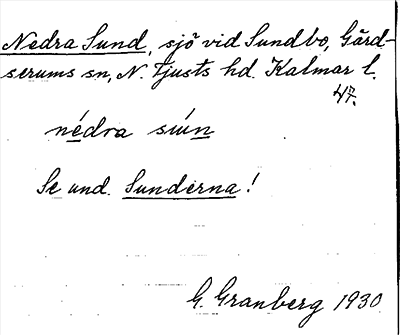 Nedra Sund, sjö vid Sundbo, Gärd-
serums sn, N. Tjusts hd. Kalmar l.
47.
nédra sún
Se und. Sunderna!
G. Granberg 1930